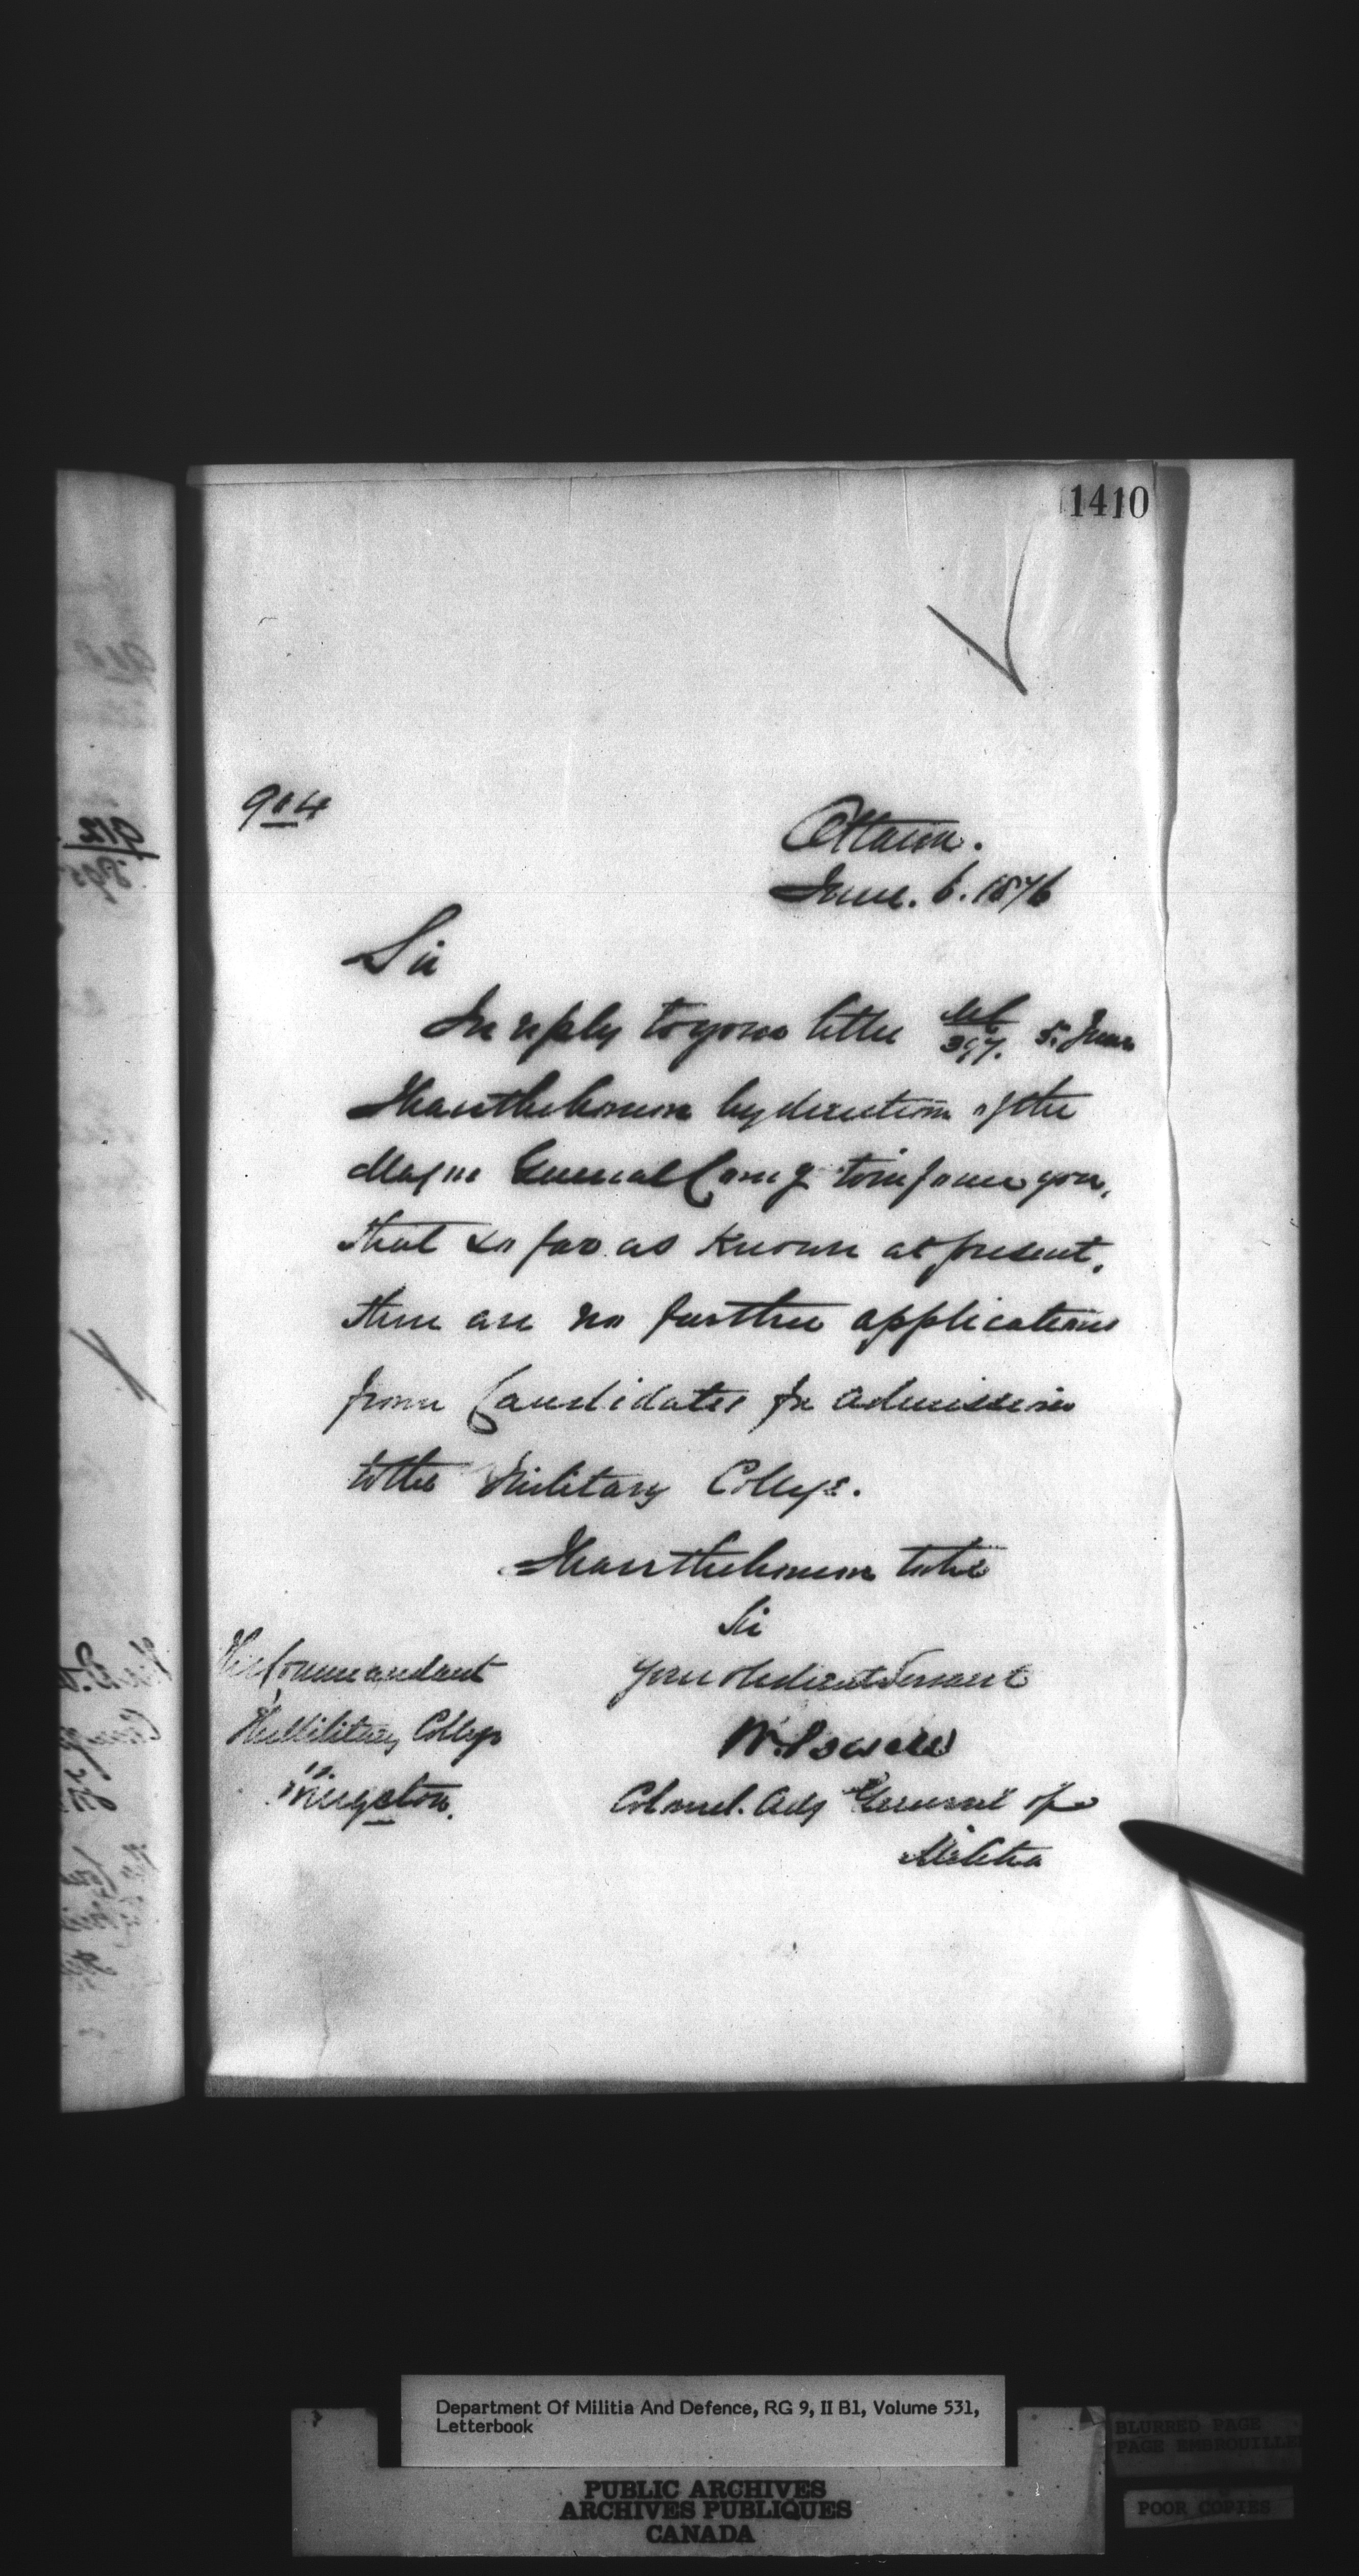 1410
904
Ottawa.
June. 6. 1876
Sir
In reply to your letter 397. 5th June
I have the honour by direction of the
Major General Comg to inform you,
that so far as known at present,
there are no further applications
from Candidates for admission
to the Military College.
I have the honour to be
Sir
Your obedient Servant
W. Powell
Colonel. Adj General of
Militia
The Commandant
The Military College
Kingston.
912
Department Of Militia And Defence, RG 9, II B1, Volume 531,
Letterbook
PUBLIC ARCHIVES
ARCHIVES PUBLIQUES
CANADA
BLURRED PAGE
PAGE EMBROUILLEE
POOR COPIES